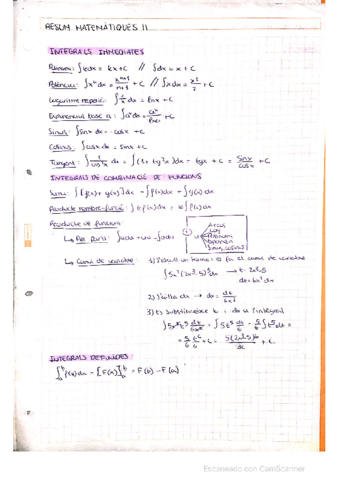 RESUM MATEMÀTIQUES II
INTEGRALS IMMEDIATES
∫k dx = kx + C // ∫dx = x + C
Potències: ∫xⁿ dx = xⁿ⁺¹/n+1 + C // ∫x dx = x²/2 + C
Logaritme neperià: ∫1/x dx = lnx + C
Exponencial base a: ∫aˣ dx = aˣ/lna + C
Sinus: ∫sinx dx = -cosx + C
Cosinus: ∫cosx dx = sinx + C
Tangent: ∫1/cos²x dx = ∫(1 + tg²x)dx = tgx + C = sinx/cosx + C
INTEGRALS DE COMBINACIÓ DE FUNCIONS
Suma: ∫[f(x) + g(x)]dx = ∫f(x)dx + ∫g(x)dx
Producte nombre-funció: ∫k f(x)dx = k∫f(x)dx
Producte de funcions:
↳ Per parts: ∫u dv = uv - ∫v du
Arcos
Log
Polinomi
Exponen
Sinus, cosinus
↳ Canvi de variable:
∫5x²(2x³-5)⁵dx → t = 2x³-5
dt = 6x² dx
2) S'aïlla dx → dx = dt/6x²
3) Es substitueix t i dx a l'integral
∫5x² t⁵ dt/6x² = ∫5t⁵ dt/6 = 5/6 ∫t⁵ dt =
= 5/6 t⁶/6 + C = 5(2x³-5)⁶/36 + C
INTEGRALS DEFINIDES
∫ₐᵇ f(x)dx = [F(x)]ₐᵇ = F(b) - F(a)
Escaneado con CamScanner